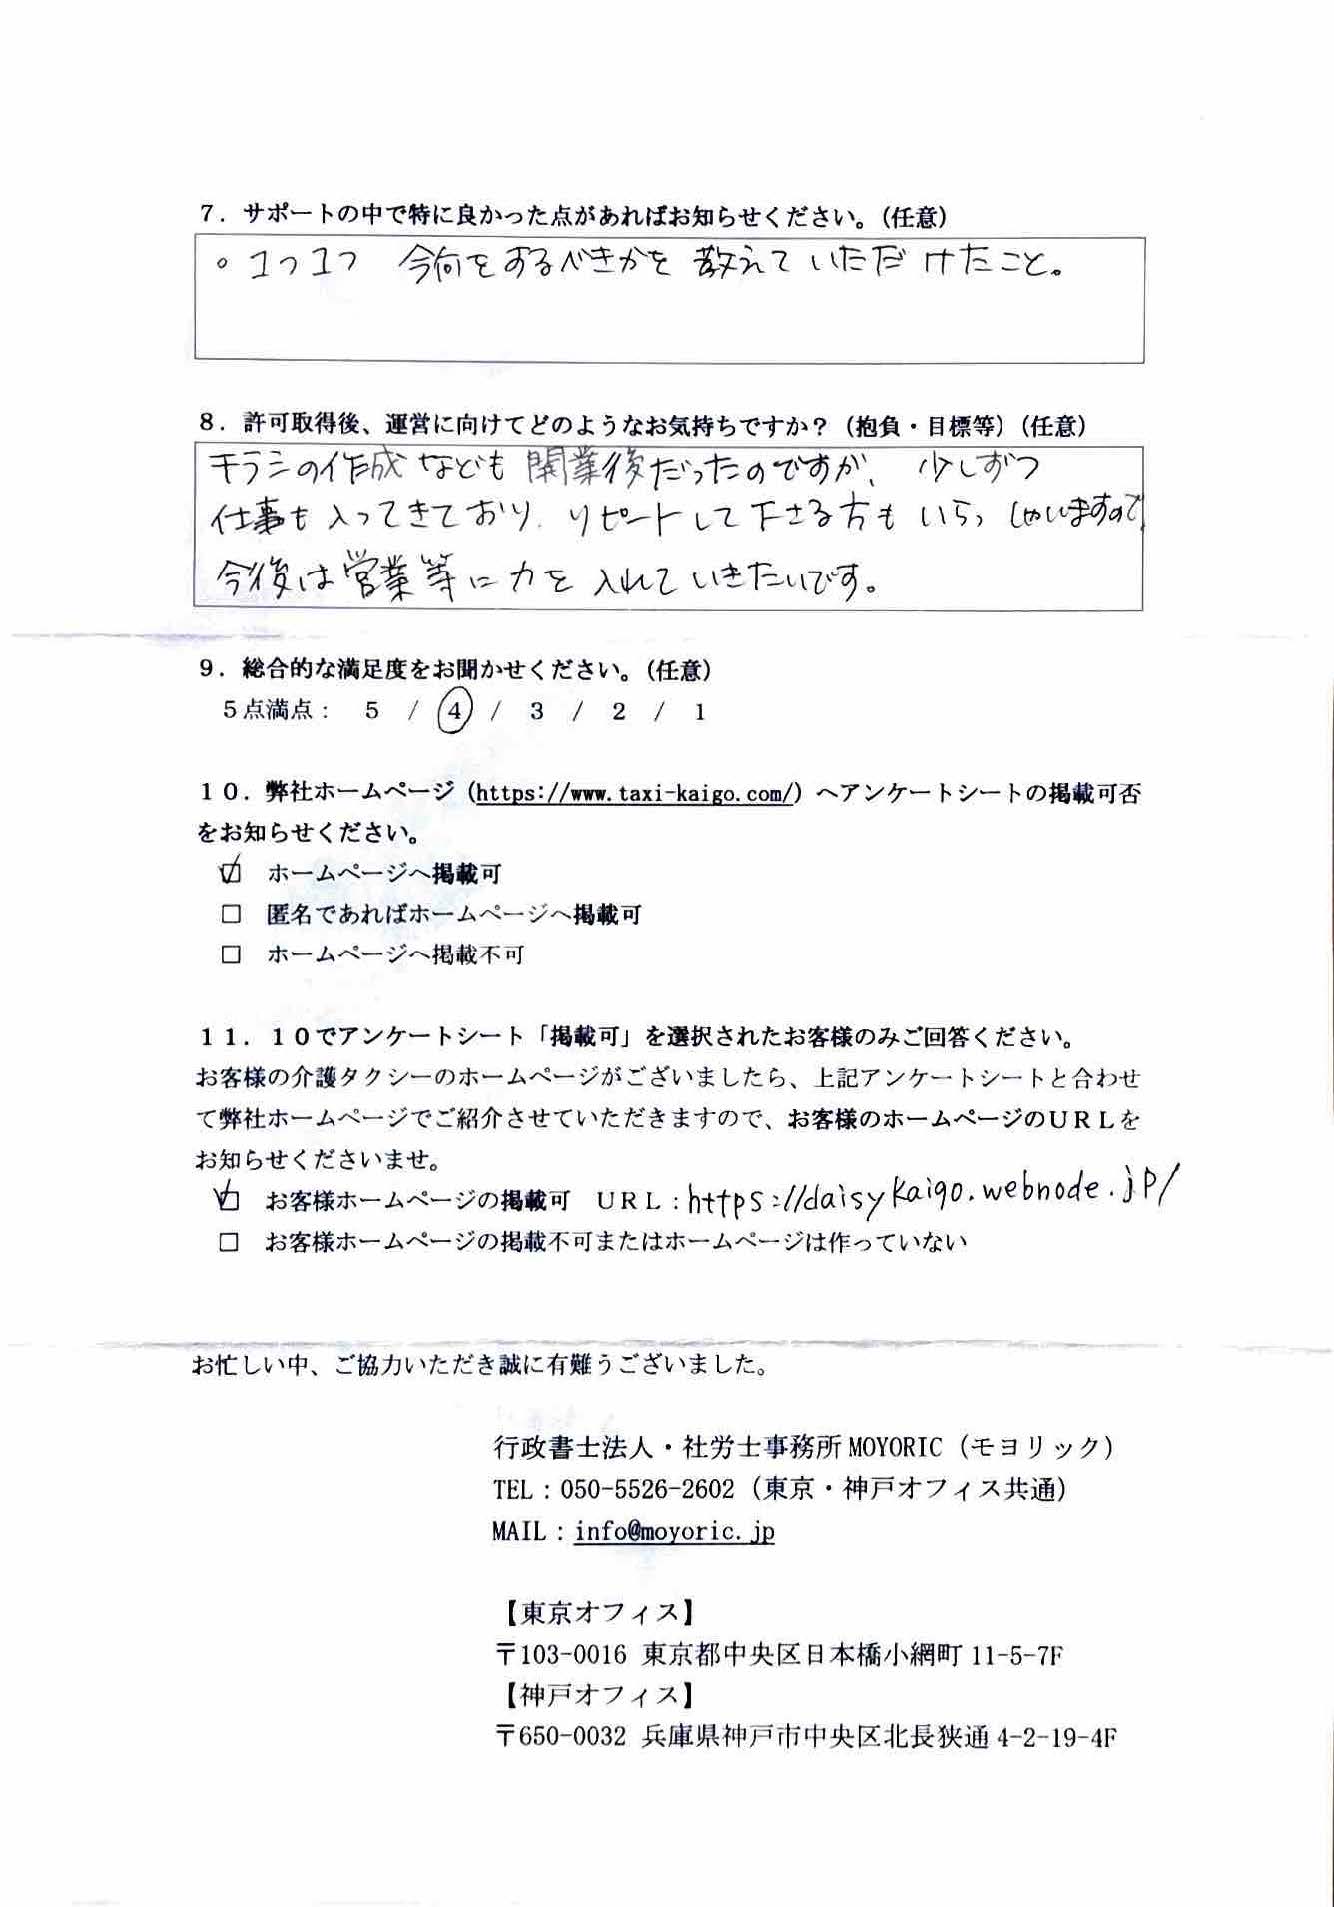 7．サポートの中で特に良かった点があればお知らせください。（任意）
。コツコツ 今何をするべきかを 教えて いただけたこと。
8．許可取得後、運営に向けてどのようなお気持ちですか？（抱負・目標等）（任意）
チラシの作成なども開業後だったのですが、少しずつ
仕事も入ってきており、リピートして下さる方もいらっしゃいますので、
今後は営業等に力を入れていきたいです。
9．総合的な満足度をお聞かせください。（任意）
5点満点： 5 / 4 / 3 / 2 / 1
10．弊社ホームページ（https://www.taxi-kaigo.com/）へアンケートシートの掲載可否
をお知らせください。
☑ ホームページへ掲載可
□ 匿名であればホームページへ掲載可
□ ホームページへ掲載不可
11．10でアンケートシート「掲載可」を選択されたお客様のみご回答ください。
お客様の介護タクシーのホームページがございましたら、上記アンケートシートと合わせ
て弊社ホームページでご紹介させていただきますので、お客様のホームページのURLを
お知らせくださいませ。
☑ お客様ホームページの掲載可 URL：https://daisykaigo.webnode.jp/
□ お客様ホームページの掲載不可またはホームページは作っていない
お忙しい中、ご協力いただき誠に有難うございました。
行政書士法人・社労士事務所MOYORIC（モヨリック）
TEL：050-5526-2602（東京・神戸オフィス共通）
MAIL：info@moyoric.jp
【東京オフィス】
〒103-0016 東京都中央区日本橋小網町11-5-7F
【神戸オフィス】
〒650-0032 兵庫県神戸市中央区北長狭通4-2-19-4F